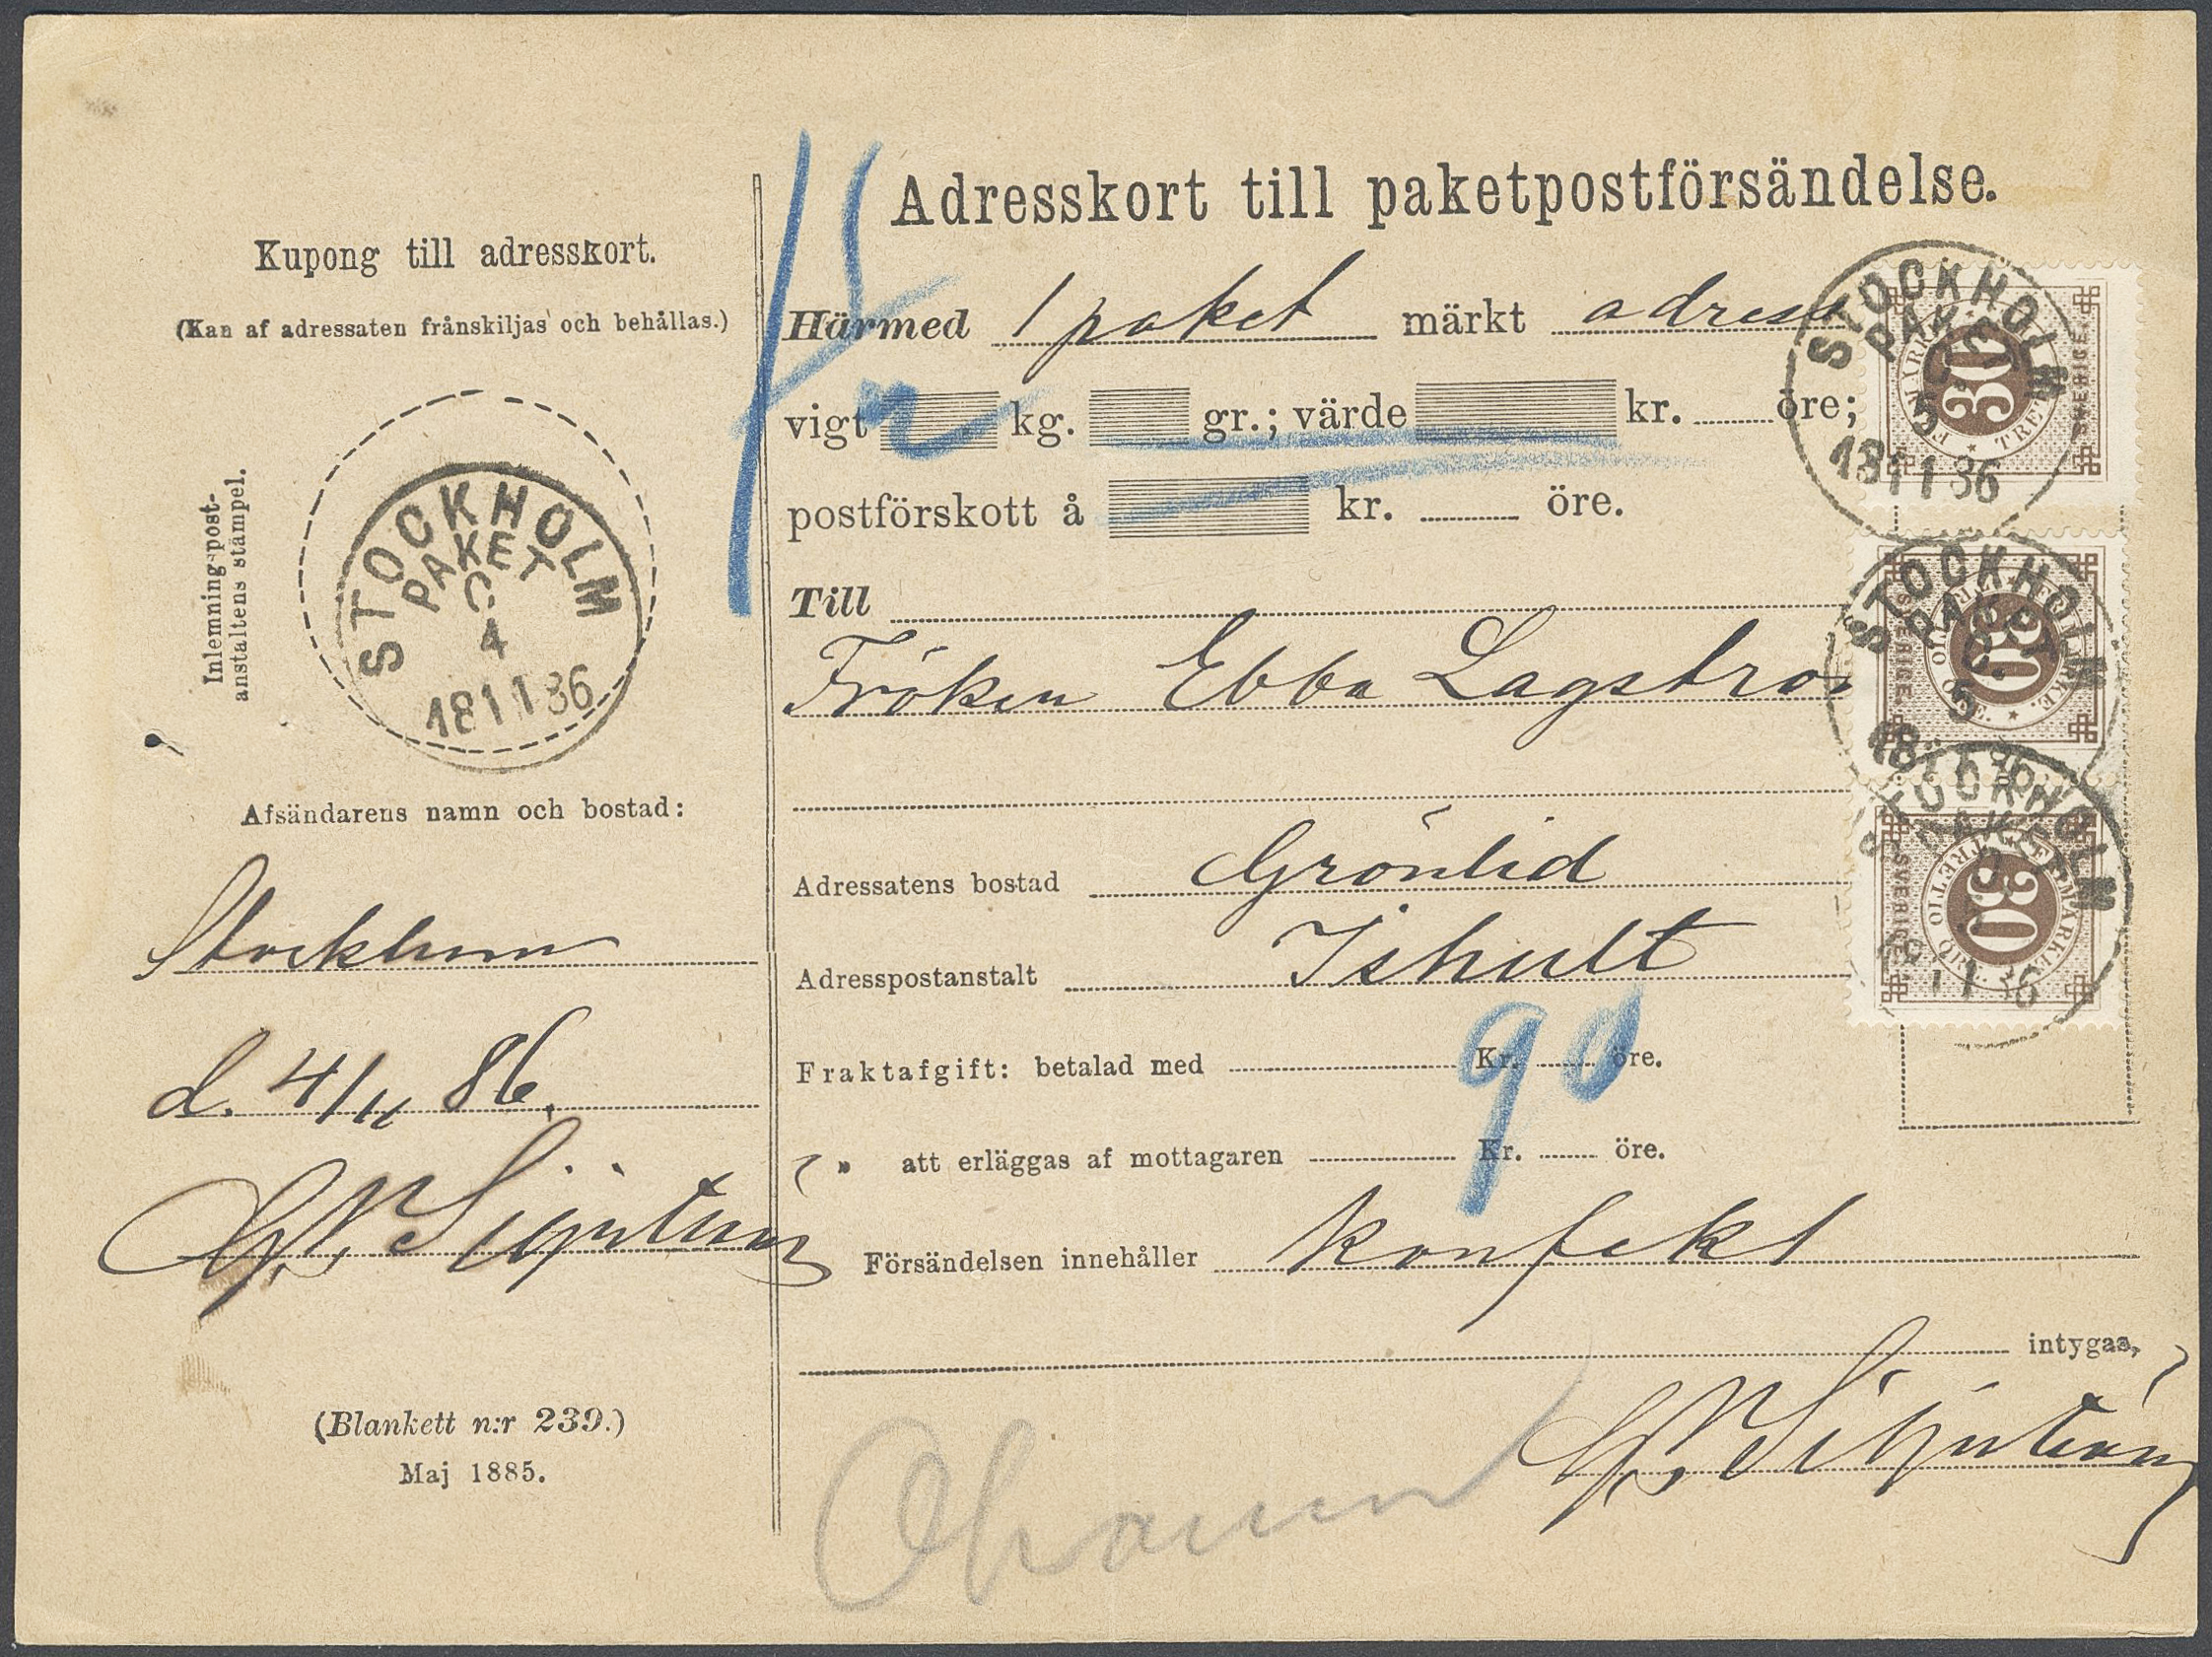 Kupong till adresskort.
(Kan af adressaten frånskiljas och behållas.)
Inlemningspost-
anstaltens stämpel.
STOCKHOLM
PAKET
C.
4
1811 86
Afsändarens namn och bostad:
Stockholm
d. 4/11 86.
(Blankett n:r 239.)
Maj 1885.
Adresskort till paketpostförsändelse.
Härmed 1 paket märkt adress
vigt kg. gr.; värde kr. öre;
postförskott å kr. öre.
Till
Fröken Ebba Lagstro
Adressatens bostad Grönlid
Adresspostanstalt Ishult
Fraktafgift: betalad med Kr. öre.
90
» att erläggas af mottagaren Kr. öre.
Försändelsen innehåller konfekt
intygas,
STOCKHOLM
PAKET
5
1811 86
30
SVERIGE
STOCKHOLM
5
30
SVERIGE
STOCKHOLM
30
SVERIGE
FRIMÄRKE
TRETIO ÖRE